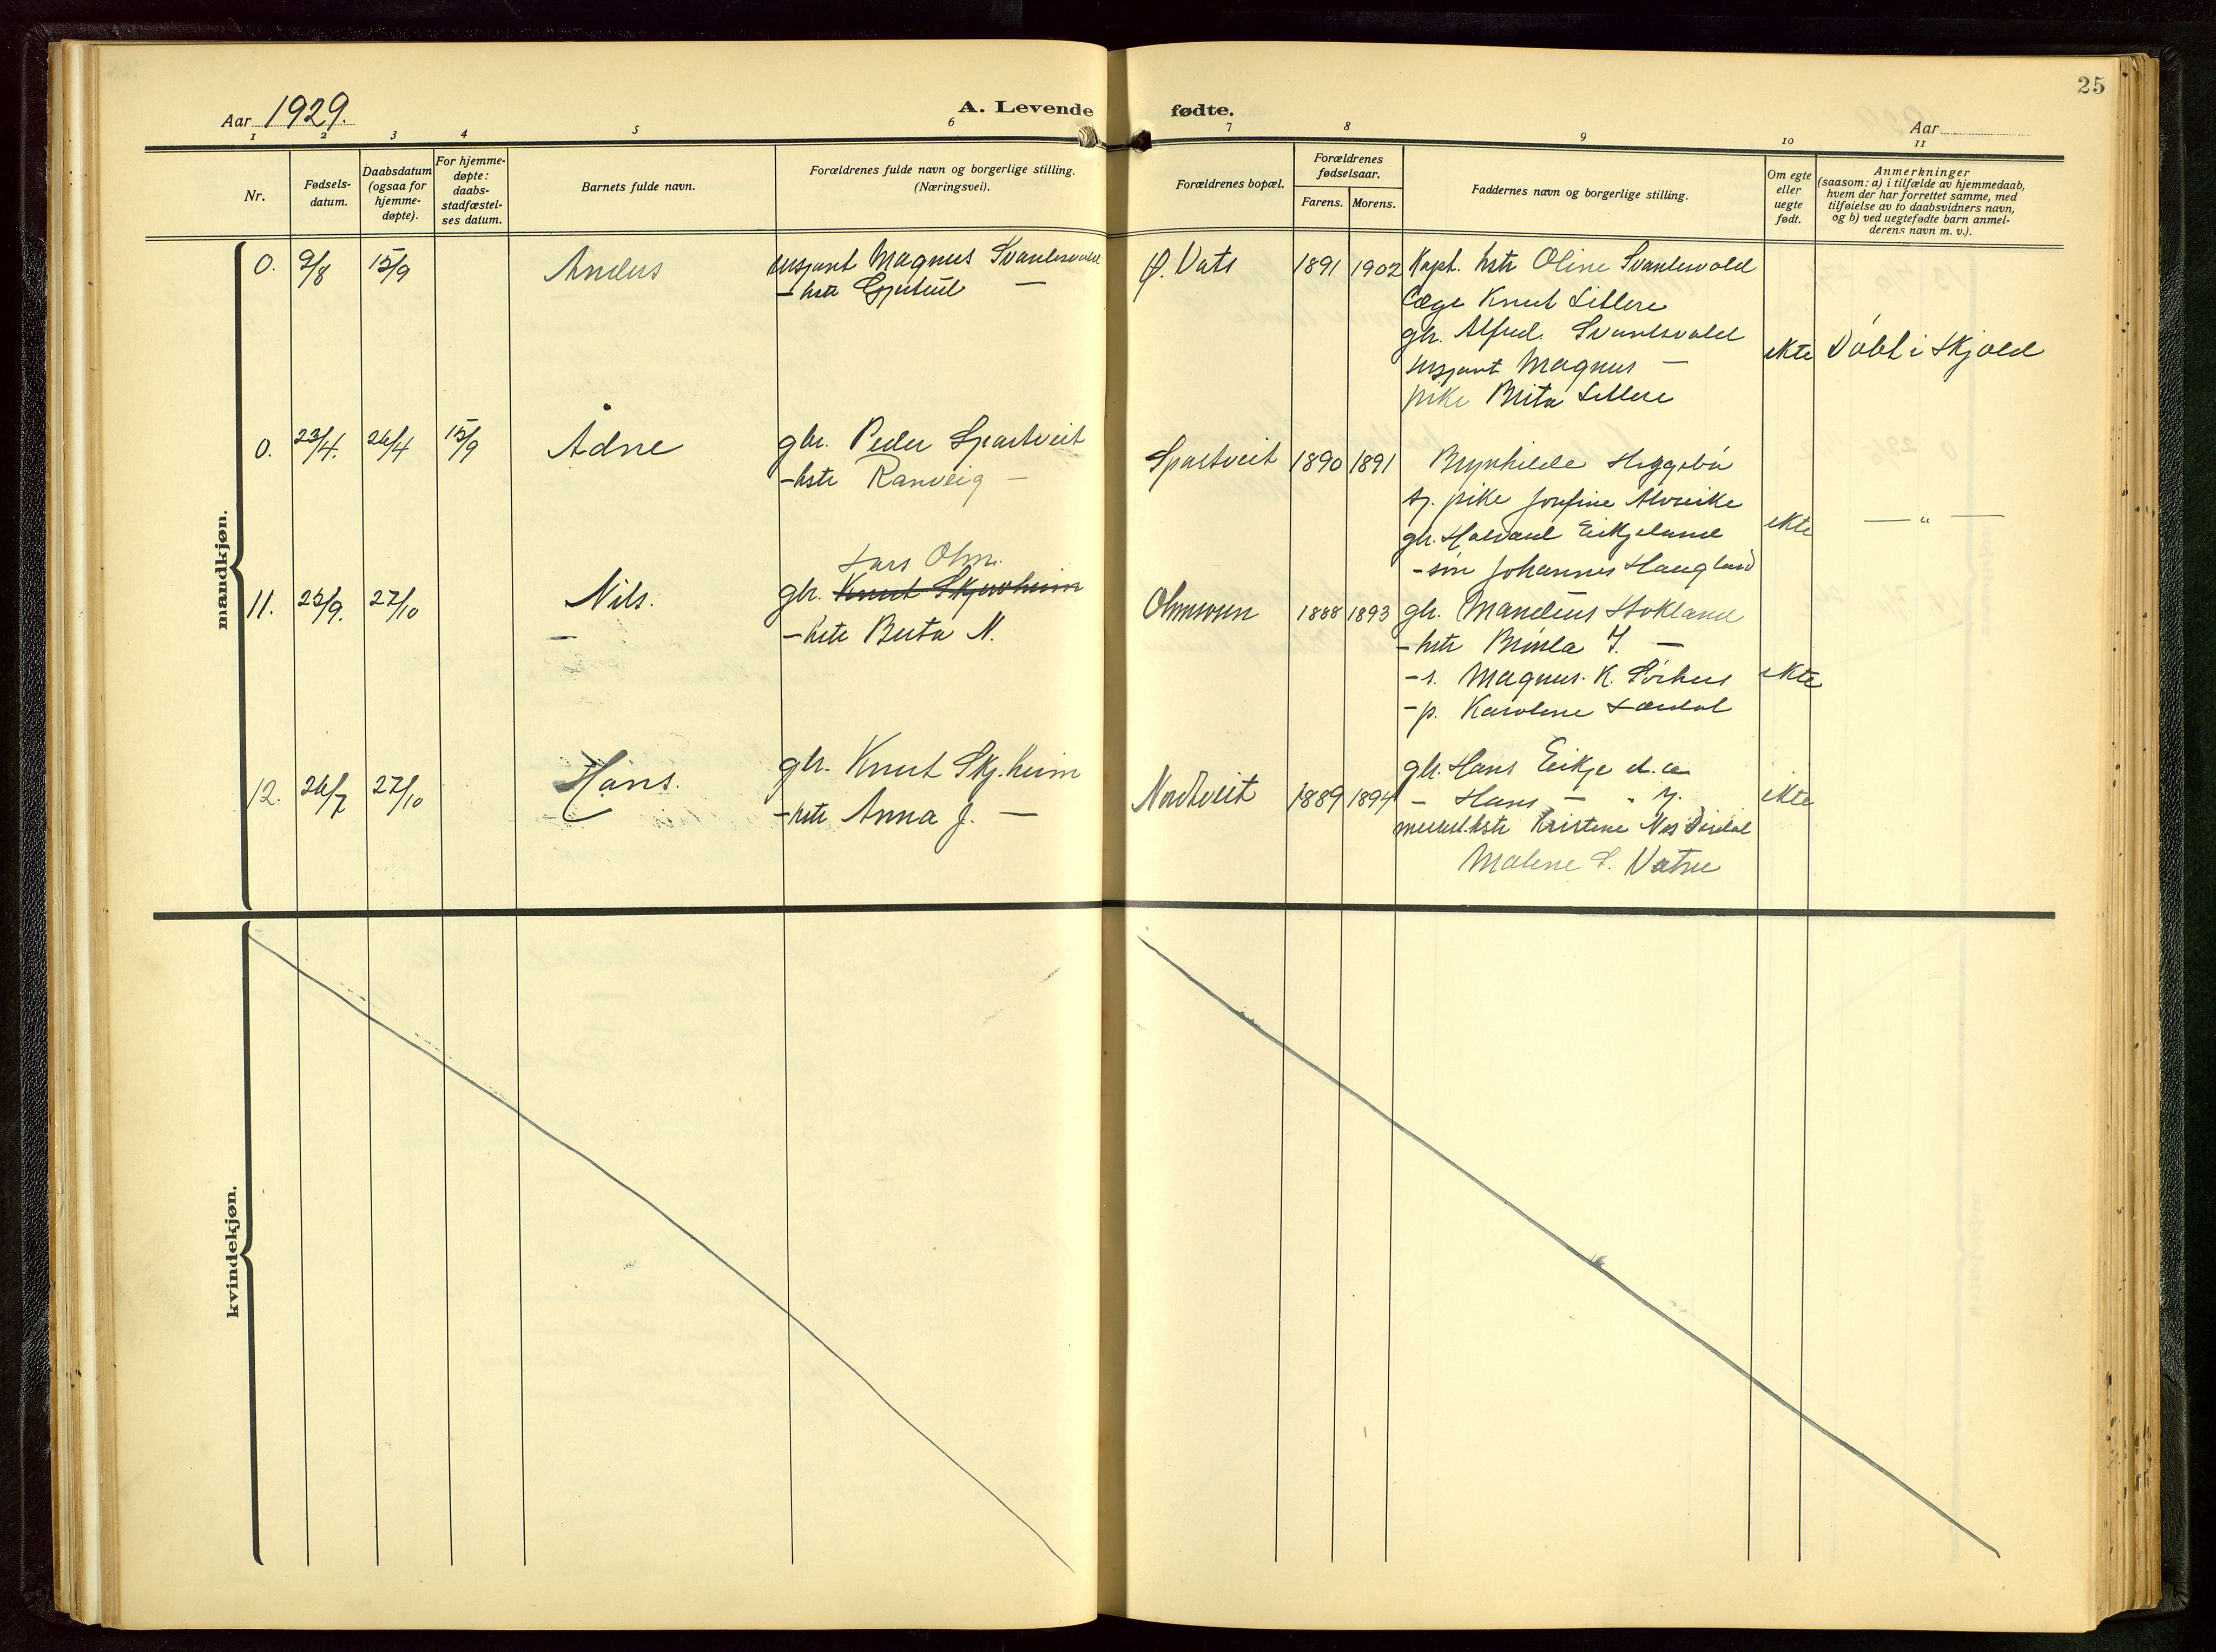 25
Aar 1929.
A. Levende fødte.
Aar
1 2 3 4 5 6 7 8 9 10 11
Nr.
Fødsels-
datum.
Daabsdatum
(ogsaa for
hjemme-
døpte).
For hjemme-
døpte:
daabs-
stadfæstel-
ses datum.
Barnets fulde navn.
Forældrenes fulde navn og borgerlige stilling.
(Næringsvei).
Forældrenes bopæl.
Forældrenes
fødselsaar.
Farens. Morens.
Faddernes navn og borgerlige stilling.
Om egte
eller
uegte
født.
Anmerkninger
(saasom: a) i tilfælde av hjemmedaab,
hvem der har forrettet samme, med
tilføielse av to daabsvidners navn,
og b) ved uegtefødte barn anmel-
derens navn m. v.).
mandkjøn.
0. 9/8 15/9 Anders
sersjant Magnus Svantesvold
- hstr —
Ø. Vats 1891 1902
Kapt. hstr Oline Svantesvold
Læge Knut Lillere
gbr. Alfred Svantesvold
sersjant Magnus —
pike Brita Lillere
ekte Døbt i Skjold
0. 23/4. 26/4 15/9 Ådne
gbr. Peder Spartveit
- hstr Ranveig —
Spartveit 1890 1891
Brynhilde
tj. pike Josfine Alvseike
gbr. Halvard Eikjeland
- søn Johannes Haugland
ekte — „ —
11. 25/9. 27/10 Nils.
Lars Olm.
gbr. Knut Skjerheim
- hstr Berta N.
1888 1893
gbr. Mandius Stokland
- hstr —
- s. Magnus K. Sørhus
- p. Karoline
ekte
12. 26/7 27/10 Hans.
gbr. Knut Skj.heim
- hstr Anna J. —
Nordtveit 1889 1894
gbr. Hans Eikje d. e.
- Hans — „ y.
hstr Kristine
Malene S. Vatne
ekte
kvindekjøn.